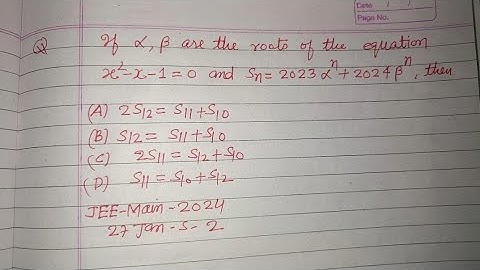 Date
Page No.
Q If α, β are the roots of the equation
x²-x-1=0 and Sn = 2023 αⁿ + 2024 βⁿ, then
(A) 2S12 = S11 + S10
(B) S12 = S11 + S10
(C) 2S11 = S12 + S10
(D) S11 = S10 + S12
JEE-Main-2024
27 Jan-S-2